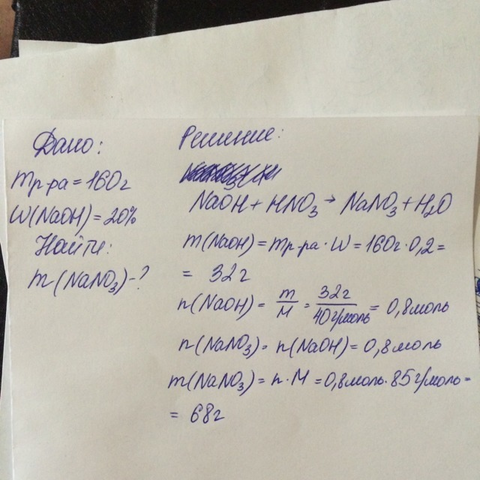 Дано:
mр-ра = 160г
W(NaOH) = 20%
Найти:
m(NaNO₃) - ?
Решение:
NaOH + HNO₃ → NaNO₃ + H₂O
m(NaOH) = mр-ра · W = 160г · 0,2 =
= 32г
n(NaOH) = m/M = 32г/40г/моль = 0,8моль
n(NaNO₃) = n(NaOH) = 0,8моль
m(NaNO₃) = n · M = 0,8моль · 85г/моль =
= 68г